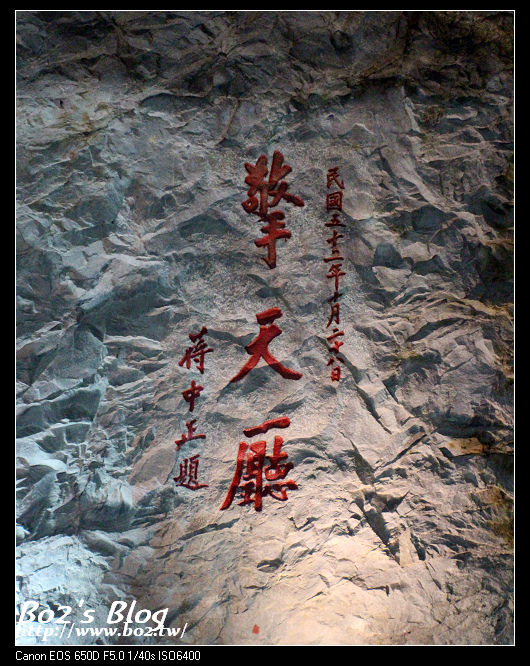 民國五十二年 月二十 日
擎天廳
蔣中正題
Bo2's Blog
http://www.bo2.tw/
Canon EOS 650D F5.0 1/40s ISO6400